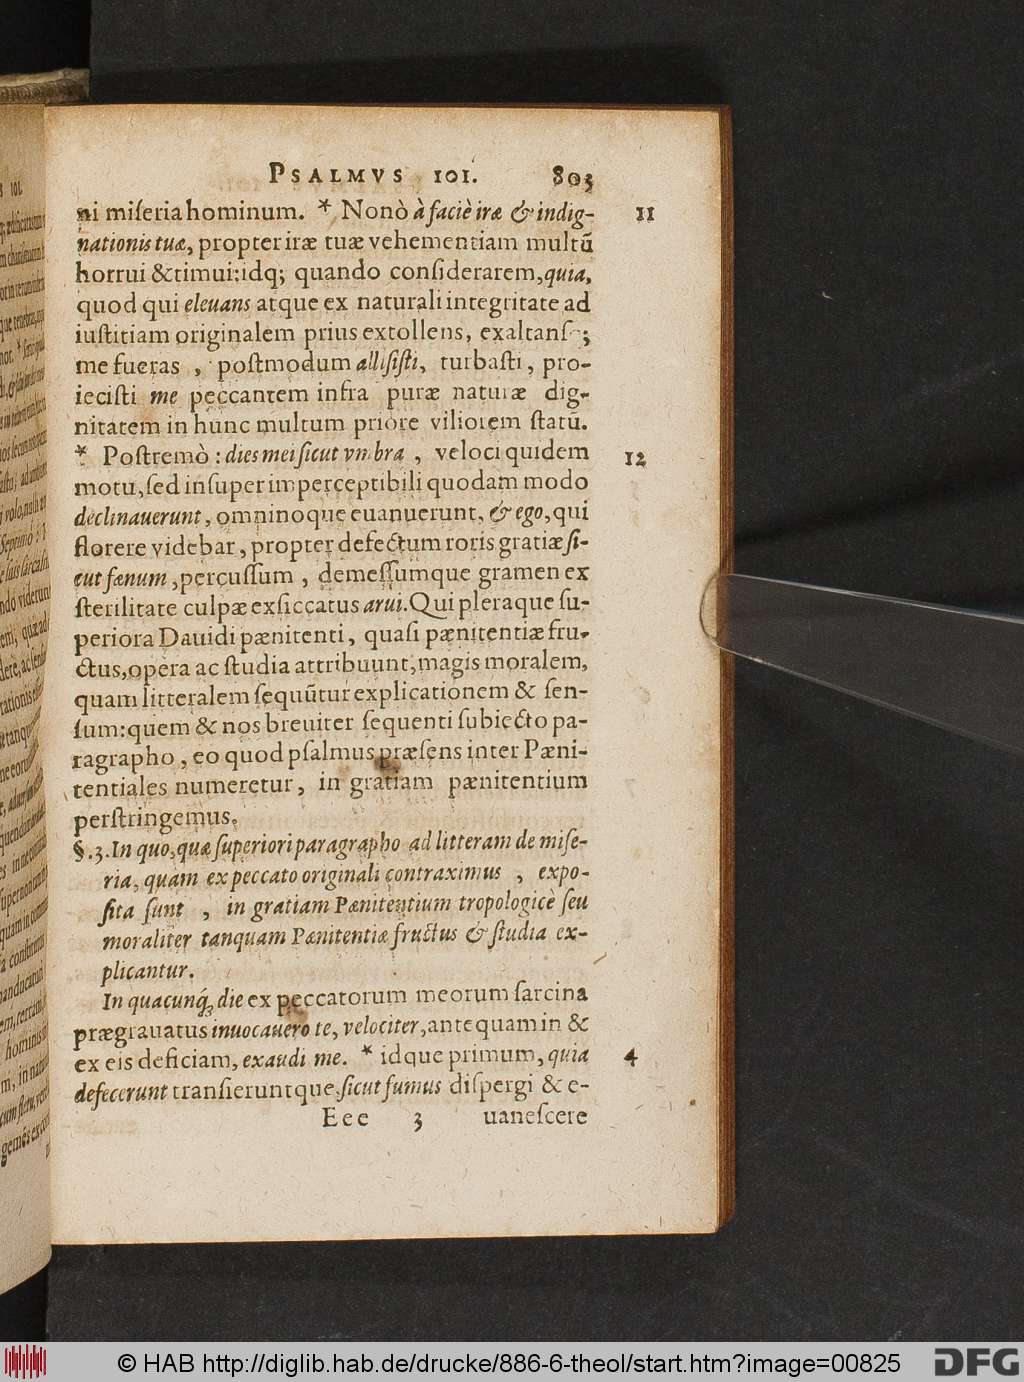 PSALMVS 101. 803
ni miſeria hominum. * Nonò à faciè iræ & indig- 11
nationis tuæ, propter iræ tuæ vehementiam multũ
horrui & timui: idq; quando conſiderarem, quia,
quod qui eleuans atque ex naturali integritate ad
iuſtitiam originalem prius extollens, exaltanſq;
me fueras, poſtmodum alliſiſti, turbaſti, pro-
ieciſti me peccantem infra puræ naturæ dig-
nitatem in hunc multum priore viliorem ſtatũ.
* Poſtremò: dies mei ſicut vmbra, veloci quidem 12
motu, ſed inſuper imperceptibili quodam modo
declinauerunt, omninoque euanuerunt, & ego, qui
florere videbar, propter defectum roris gratiæ ſi-
cut fœnum, percuſſum, demeſſumque gramen ex
ſterilitate culpæ exſiccatus arui. Qui pleraque ſu-
periora Dauidi pænitenti, quaſi pænitentiæ fru-
ctus, opera ac ſtudia attribuunt, magis moralem,
quam litteralem ſequũtur explicationem & ſen-
ſum: quem & nos breuiter ſequenti ſubiecto pa-
ragrapho, eo quod pſalmus præſens inter Pæni-
tentiales numeretur, in gratiam pænitentium
perſtringemus.
§. 3. In quo, quæ ſuperiori paragrapho ad litteram de miſe-
ria, quam ex peccato originali contraximus, expo-
ſita ſunt, in gratiam Pænitentium tropologicè ſeu
moraliter tanquam Pænitentiæ fructus & ſtudia ex-
plicantur.
In quacunq; die ex peccatorum meorum ſarcina
prægrauatus inuocauero te, velociter, antequam in &
ex eis deficiam, exaudi me. * idque primum, quia 4
defecerunt tranſieruntque ſicut fumus diſpergi & e-
Eee 3 uaneſcere
© HAB http://diglib.hab.de/drucke/886-6-theol/start.htm?image=00825
DFG